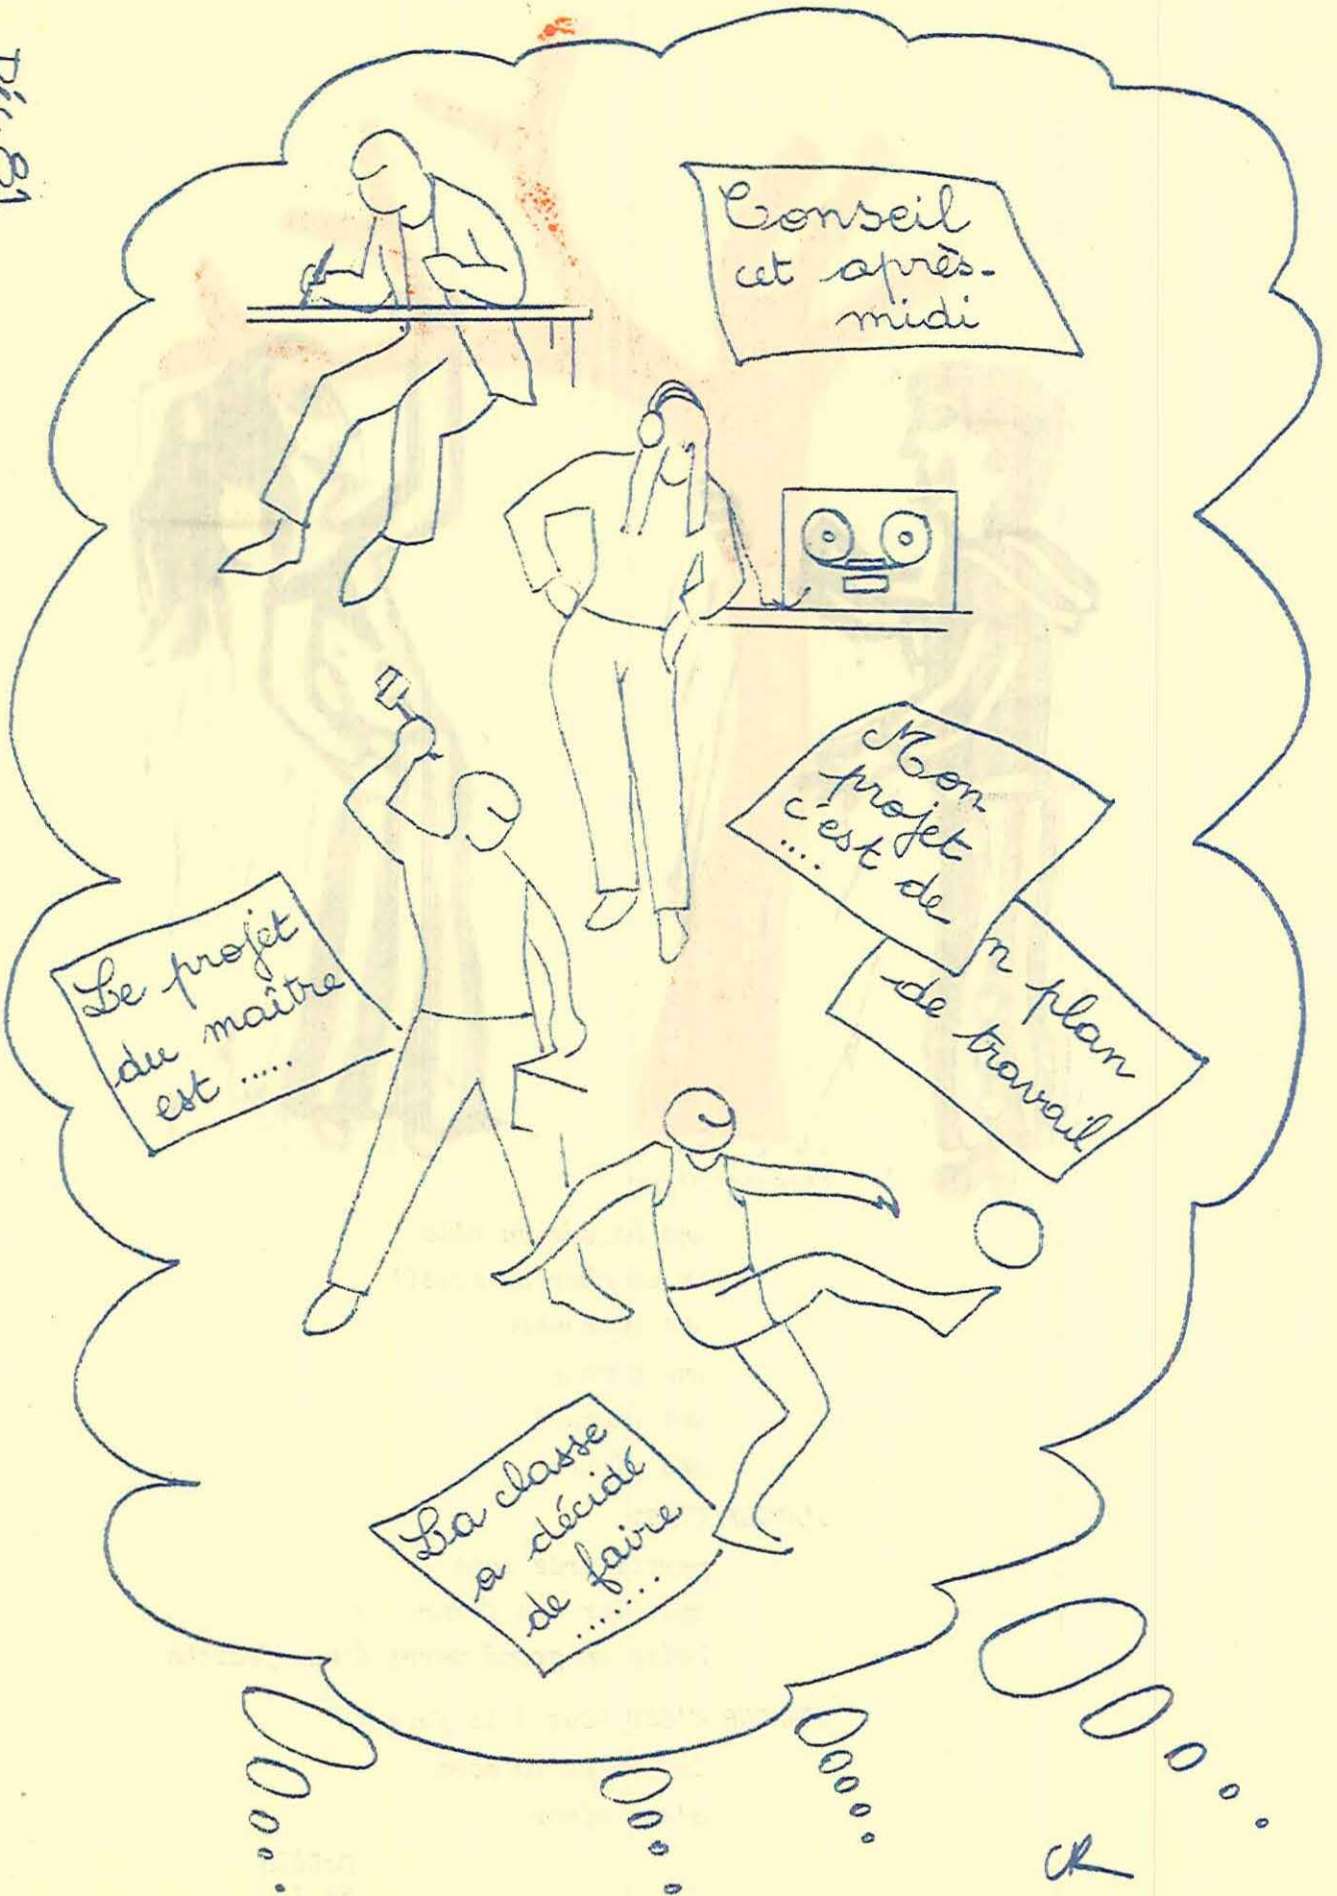 Déc. 81
Conseil
cet après-
midi
Mon
projet
c'est de
....
n plan
de travail
Le projet
du maître
est .....
La classe
a décidé
de faire
.......
CR